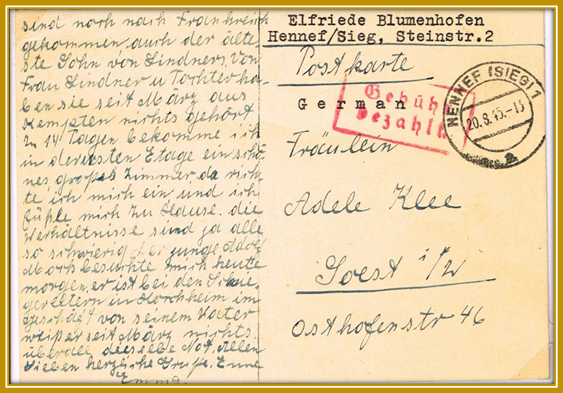 sind noch nach Frankreich
gekommen, auch der älte
ste Sohn von Lindners. Von
Frau Lindner u Tochter ha-
ben sie seit März aus
Kempten nichts gehört.
In 14 Tagen bekomme ich
in der ersten Etage ein schö-
nes, großes Zimmer, da rich-
te ich mich ein und ich
fühle mich zu Hause. die
Verhältnisse sind ja alle
so schwierig junge Adolf
Mors besuchte mich heute
morgen, er ist bei den Schwie-
gereltern in Horchheim im
Geschäft von seinem Vater
weiß er seit März nichts.
überall dieselbe Not. Allen
lieben herzliche Grüße. Eure
Emma.
Elfriede Blumenhofen
Hennef/Sieg, Steinstr.2
Postkarte
Gebühr
bezahlt
German
HENNEF (SIEG) 1
20.8.45.-13
Fräulein
Adele Klee
Soest i/W
Osthofenstr 46